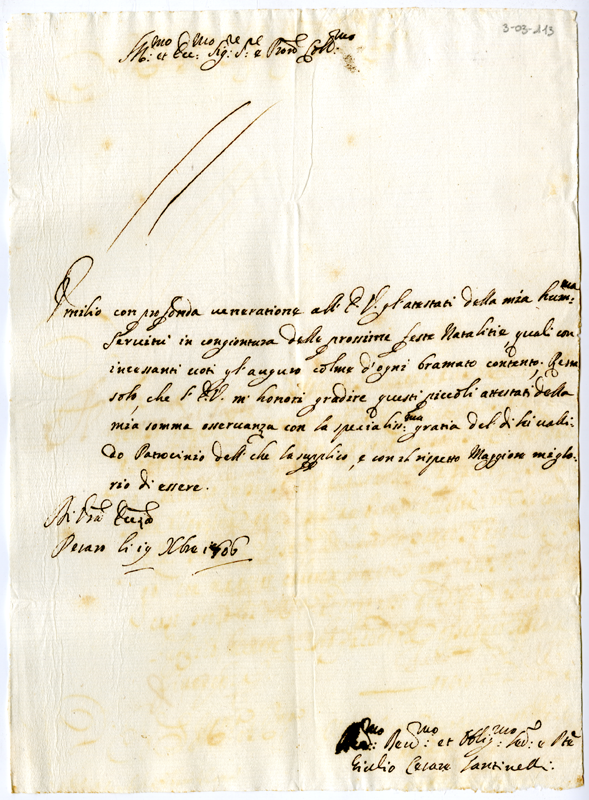 3-03-113
Ill:mo et Ecc:mo Sig:re S:re e Pron Coll:mo
Umilio con profonda veneratione all' E.V. gl'atestati della mia hum:ma
Servitù in congiontura delle prossime feste Natalitie, quali con
incessanti voti gl'auguro colme d'ogni bramato contento; Resta
solo, che l'E.V. mi honori gradire questi piccoli attestati della
mia somma osservanza con la specialiss:ma gratia del' di lei valli:
do Patrocinio dell' che la supplico, e con il rispetto Maggiore mi glo:
rio di essere.
Di V'ra Ecc'za
Pesaro li 19 Xbre 1706
Dev:mo et Oblig:mo
Giulio Cesare Santinelli.